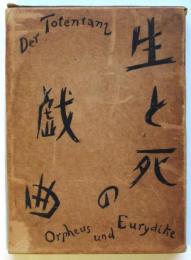 Der Totentanz
生と死
の
戯曲
Orpheus und Eurydike